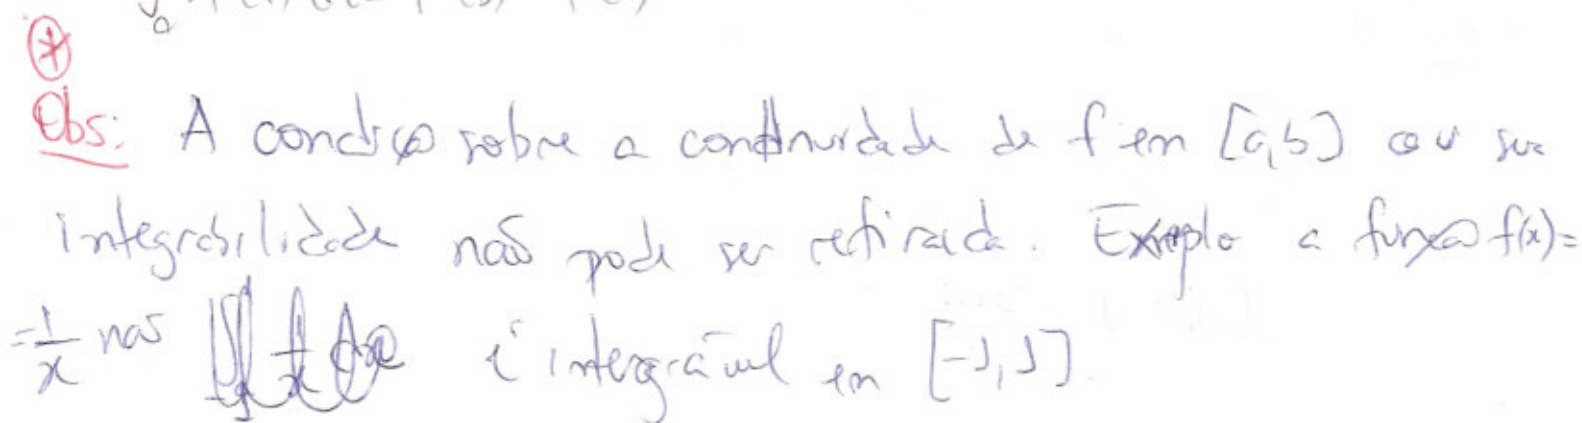 *
Obs: A condição sobre a continuidade de f em [a,b] ou sua
integrabilidade não pode ser retirada. Exemplo a função f(x)=
=1/x não é integrável em [-1,1]